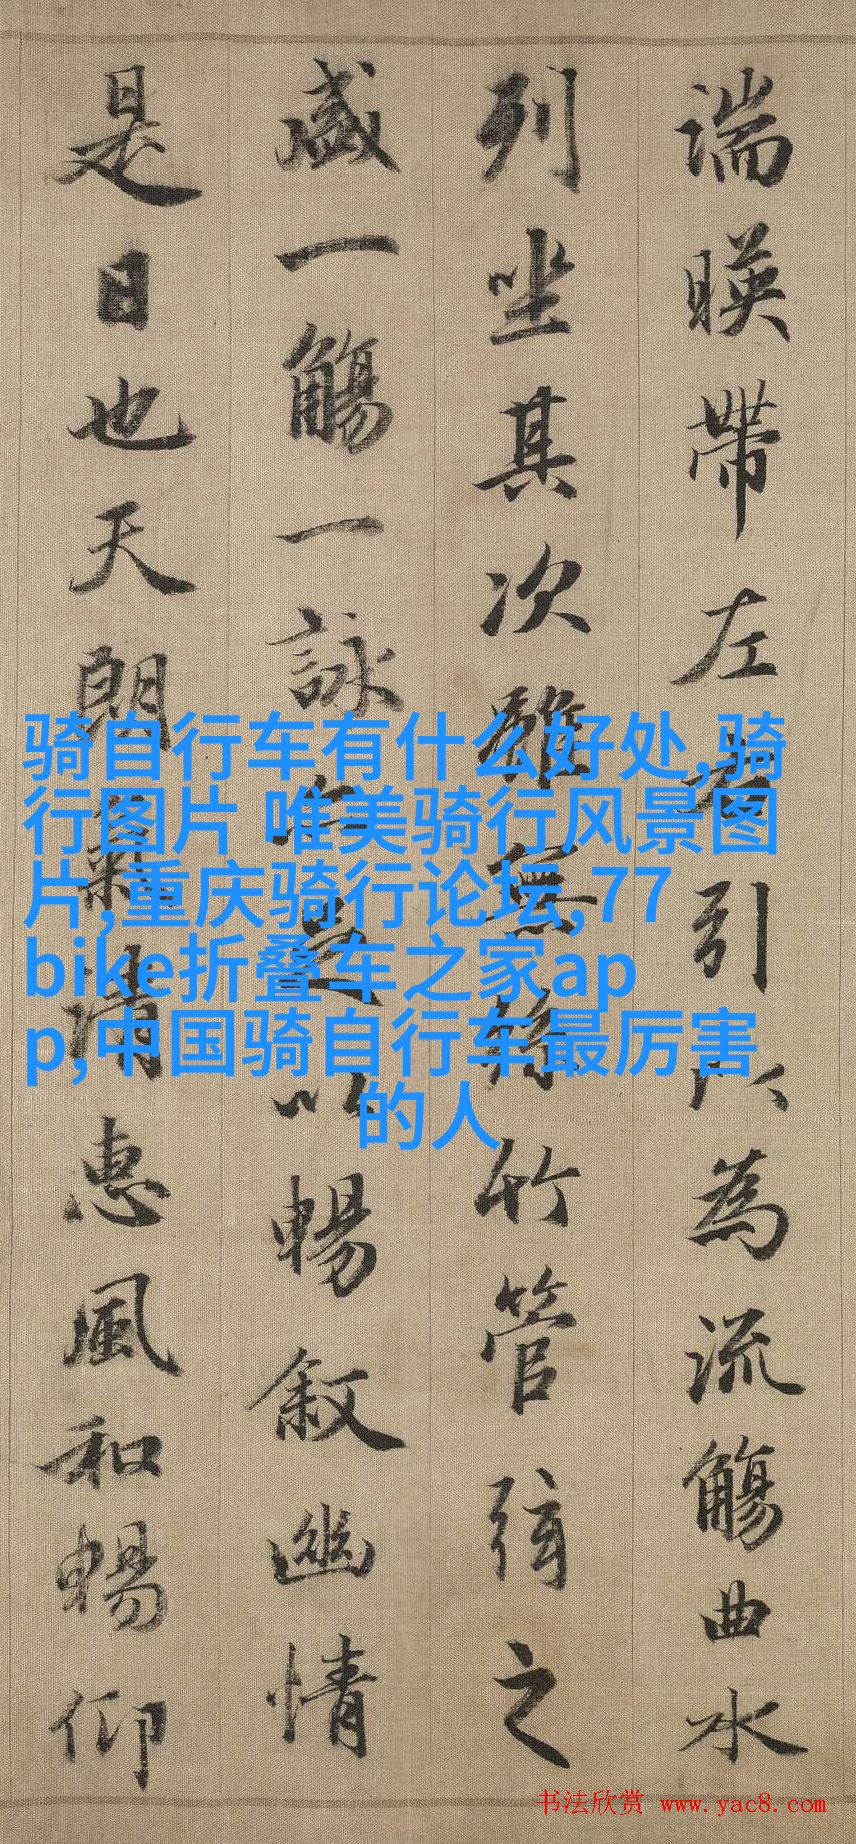 湍暎帶左右引以為流觴曲水
列坐其次雖無絲竹管弦之
盛一觴一詠亦足以暢叙幽情
是日也天朗氣清惠風和暢仰
骑自行车有什么好处,骑
行图片 唯美骑行风景图
片,重庆骑行论坛,77
bike折叠车之家ap
p,中国骑自行车最厉害
的人
书法欣赏 www.yac8.com